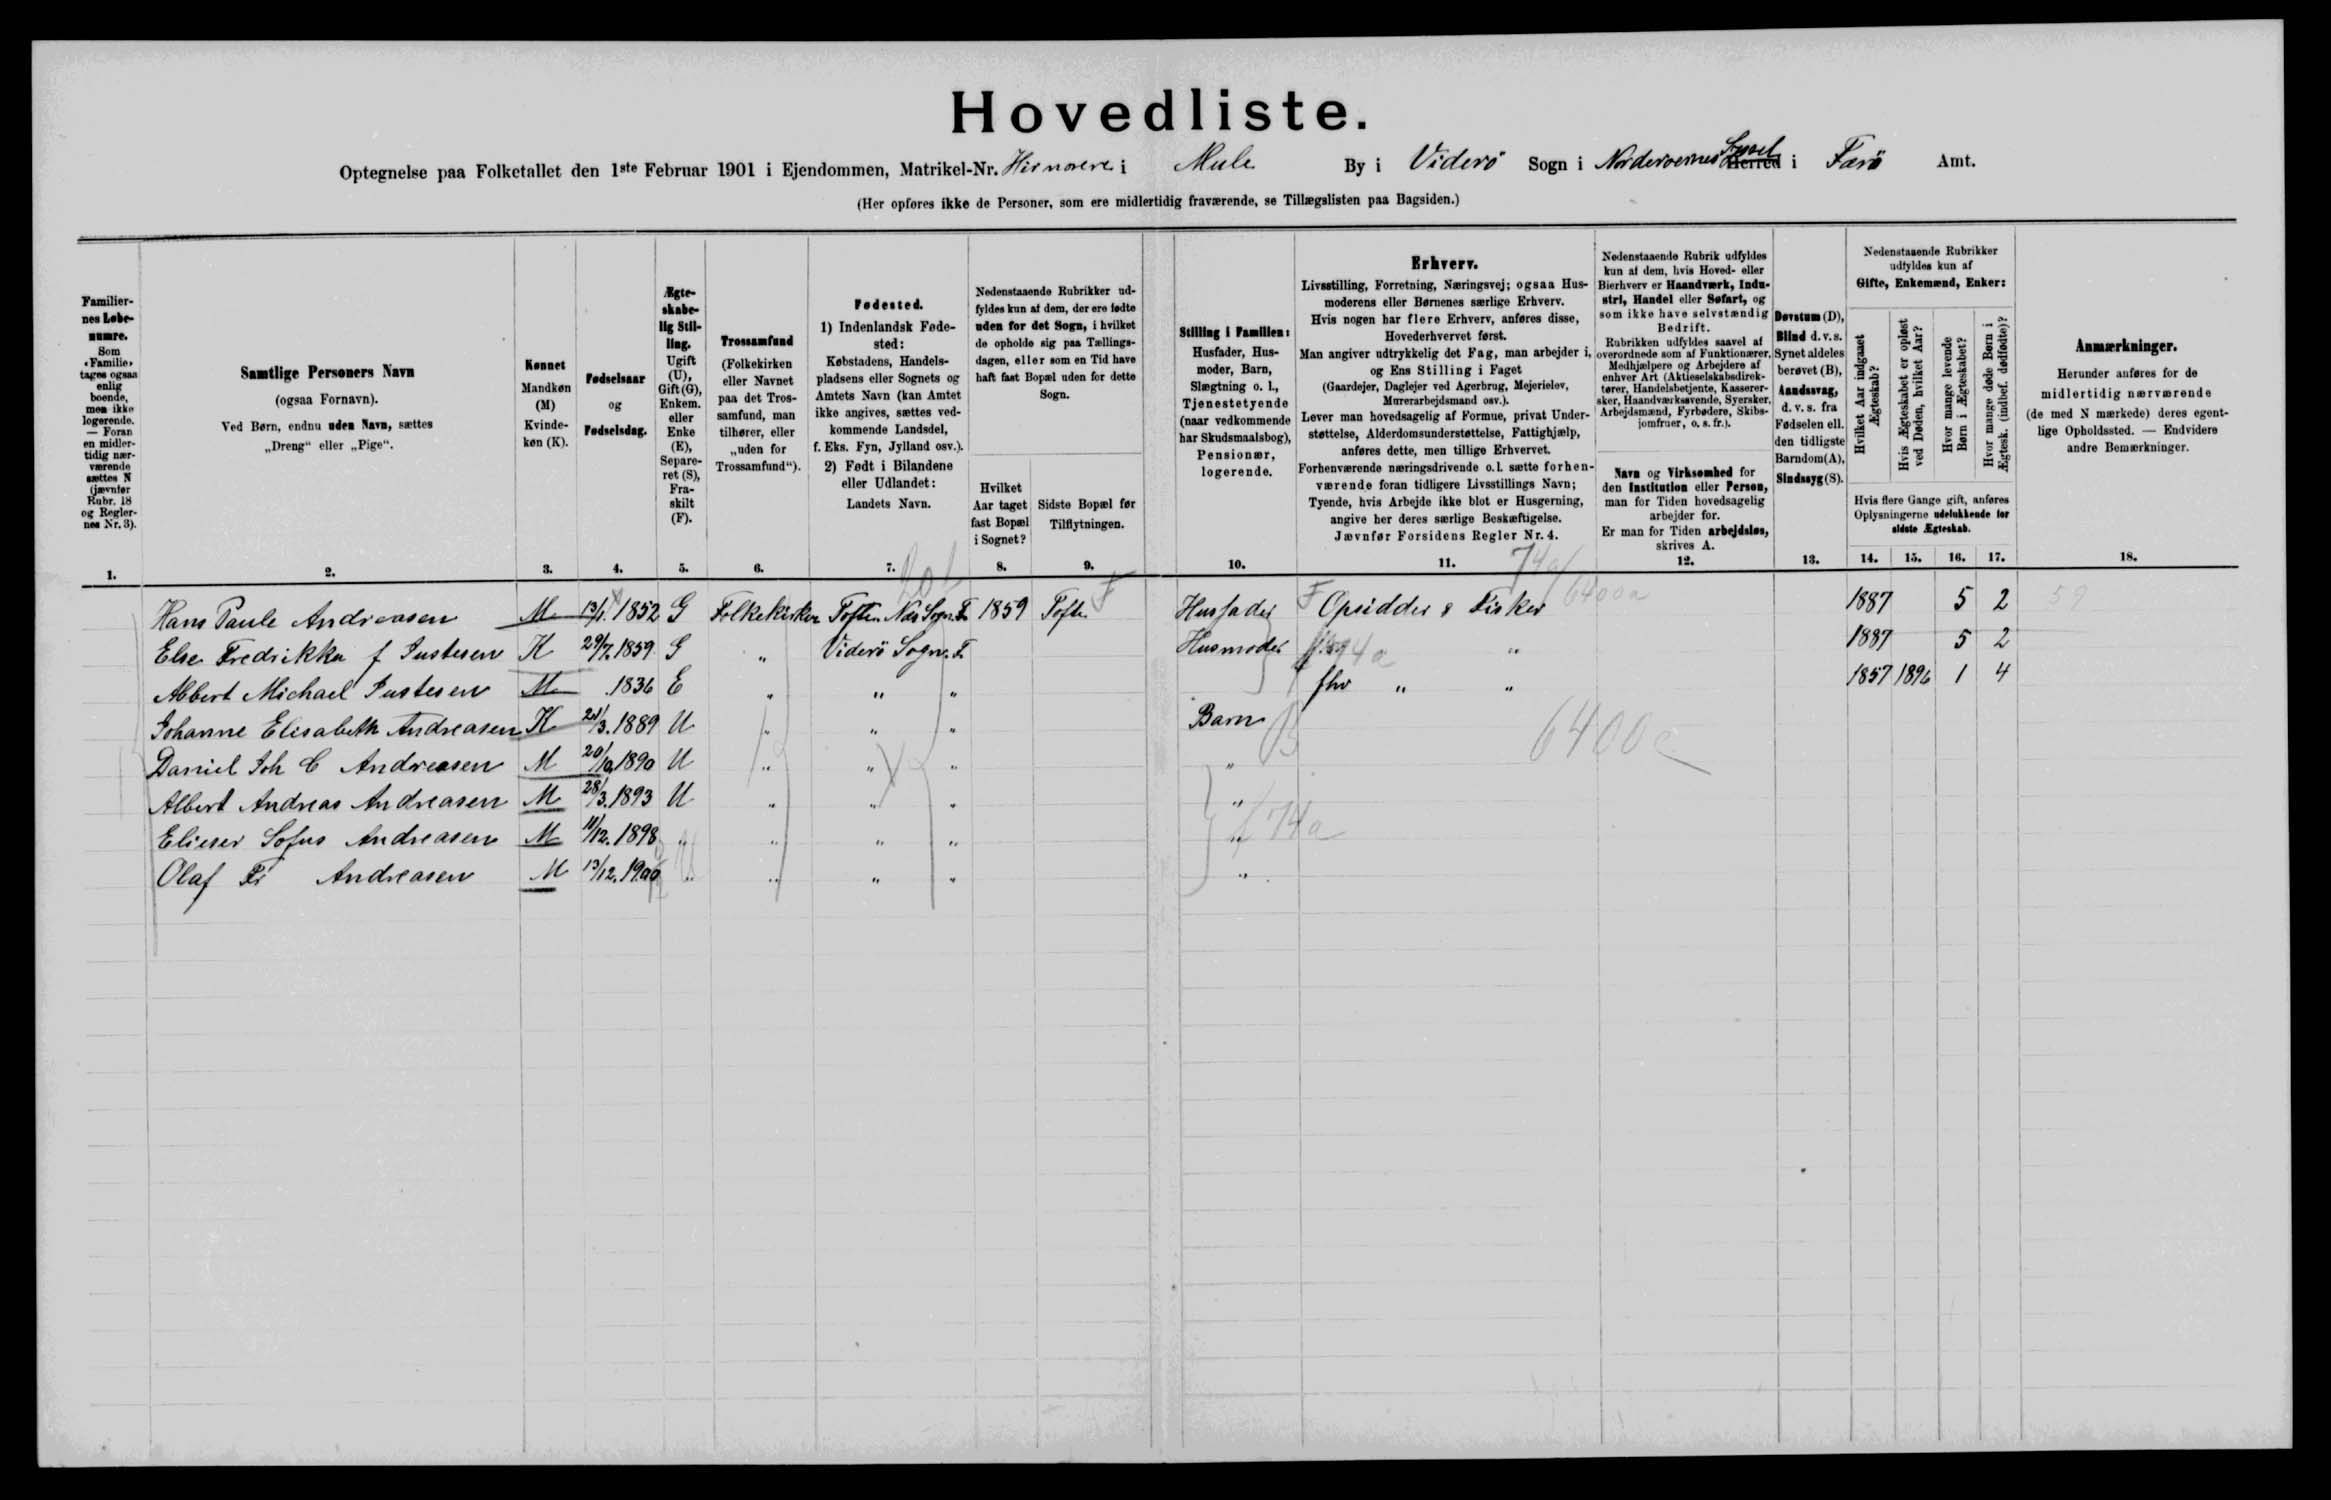 Hovedliste.
Optegnelse paa Folketallet den 1ste Februar 1901 i Ejendommen, Matrikel-Nr. i Mule By i Viderö Sogn i Norderoernes Syssel Herred i Færö Amt.
(Her opføres ikke de Personer, som ere midlertidig fraværende, se Tillægslisten paa Bagsiden.)
Familiernes Løbenumre.
Som «Familie» tages ogsaa enlig boende, men ikke logerende. — Foran en midlertidig nærværende sættes N (jævnfør Rubr. 18 og Reglernes Nr. 3).
Samtlige Personers Navn
(ogsaa Fornavn).
Ved Børn, endnu uden Navn, sættes
„Dreng“ eller „Pige“.
Kønnet
Mandkøn (M)
Kvindekøn (K).
Fødselsaar
og
Fødselsdag.
Ægteskabelig Stilling.
Ugift (U), Gift (G), Enkem. eller Enke (E), Separeret (S), Fraskilt (F).
Trossamfund
(Folkekirken eller Navnet paa det Trossamfund, man tilhører, eller „uden for Trossamfund“).
Fødested.
1) Indenlandsk Fødested:
Købstadens, Handelspladsens eller Sognets og Amtets Navn (kan Amtet ikke angives, sættes vedkommende Landsdel, f. Eks. Fyn, Jylland osv.).
2) Født i Bilandene eller Udlandet:
Landets Navn.
Nedenstaaende Rubrikker udfyldes kun af dem, der ere fødte uden for det Sogn, i hvilket de opholde sig paa Tællingsdagen, eller som en Tid have haft fast Bopæl uden for dette Sogn.
Hvilket Aar taget fast Bopæl i Sognet?
Sidste Bopæl før Tilflytningen.
Stilling i Familien:
Husfader, Husmoder, Barn, Slægtning o. l., Tjenestetyende (naar vedkommende har Skudsmaalsbog), Pensionær, logerende.
Erhverv.
Livsstilling, Forretning, Næringsvej; ogsaa Husmoderens eller Børnenes særlige Erhverv.
Hvis nogen har flere Erhverv, anføres disse, Hovederhvervet først.
Man angiver udtrykkelig det Fag, man arbejder i, og Ens Stilling i Faget
(Gaardejer, Daglejer ved Agerbrug, Mejerielev, Murerarbejdsmand osv.).
Lever man hovedsagelig af Formue, privat Understøttelse, Alderdomsunderstøttelse, Fattighjælp, anføres dette, men tillige Erhvervet.
Forhenværende næringsdrivende o. l. sætte forhenværende foran tidligere Livsstillings Navn;
Tyende, hvis Arbejde ikke blot er Husgerning, angive her deres særlige Beskæftigelse.
Jævnfør Forsidens Regler Nr. 4.
Nedenstaaende Rubrik udfyldes kun af dem, hvis Hoved- eller Bierhverv er Haandværk, Industri, Handel eller Søfart, og som ikke have selvstændig Bedrift.
Rubrikken udfyldes saavel af overordnede som af Funktionærer, Medhjælpere og Arbejdere af enhver Art (Aktieselskabsdirektører, Handelsbetjente, Kasserersker, Haandværkssvende, Syersker, Arbejdsmænd, Fyrbødere, Skibsjomfruer, o. s. fr.).
Navn og Virksomhed for den Institution eller Person, man for Tiden hovedsagelig arbejder for.
Er man for Tiden arbejdsløs, skrives A.
Døvstum (D),
Blind d. v. s. Synet aldeles berøvet (B),
Aandssvag, d. v. s. fra Fødselen ell. den tidligste Barndom (A),
Sindssyg (S).
Nedenstaaende Rubrikker udfyldes kun af
Gifte, Enkemænd, Enker:
Hvilket Aar indgaaet Ægteskab?
Hvis Ægteskabet er opløst ved Døden, hvilket Aar?
Hvor mange levende Børn i Ægteskabet?
Hvor mange døde Børn i Ægtesk. (indbef. dødfødte)?
Hvis flere Gange gift, anføres Oplysningerne udelukkende for sidste Ægteskab.
Anmærkninger.
Herunder anføres for de midlertidig nærværende (de med N mærkede) deres egentlige Opholdssted. — Endvidere andre Bemærkninger.
1. 2. 3. 4. 5. 6. 7. 8. 9. 10. 11. 12. 13. 14. 15. 16. 17. 18.
Hans Paule Andreasen M 13/1. 1852 G Folkekirken Toften Næs Sogn. F. 1859 Tofte F Husfader F Opsidder & Fisker 74a/6400a 1887 5 2 59
Else Fredrikka f Justesen K 29/7. 1859 G „ Viderö Sogn. F. Husmoder 74a „ 1887 5 2
Abbert Michael Justesen M 1836 E „ „ „ fhv „ „ 1857 1896 1 4
Johanne Elisabeth Andreasen K 21/3. 1889 U „ „ „ Barn B 6400c
Daniel Joh C Andreasen M 20/10 1890 U „ „ „ „
Albert Andreas Andreasen M 28/3. 1893 U „ „ „ „
Elieser Sofus Andreasen M 11/12. 1898 „ „ „ „ „ f 74a
Olaf Fr Andreasen M 13/12. 1900 „ „ „ „ „